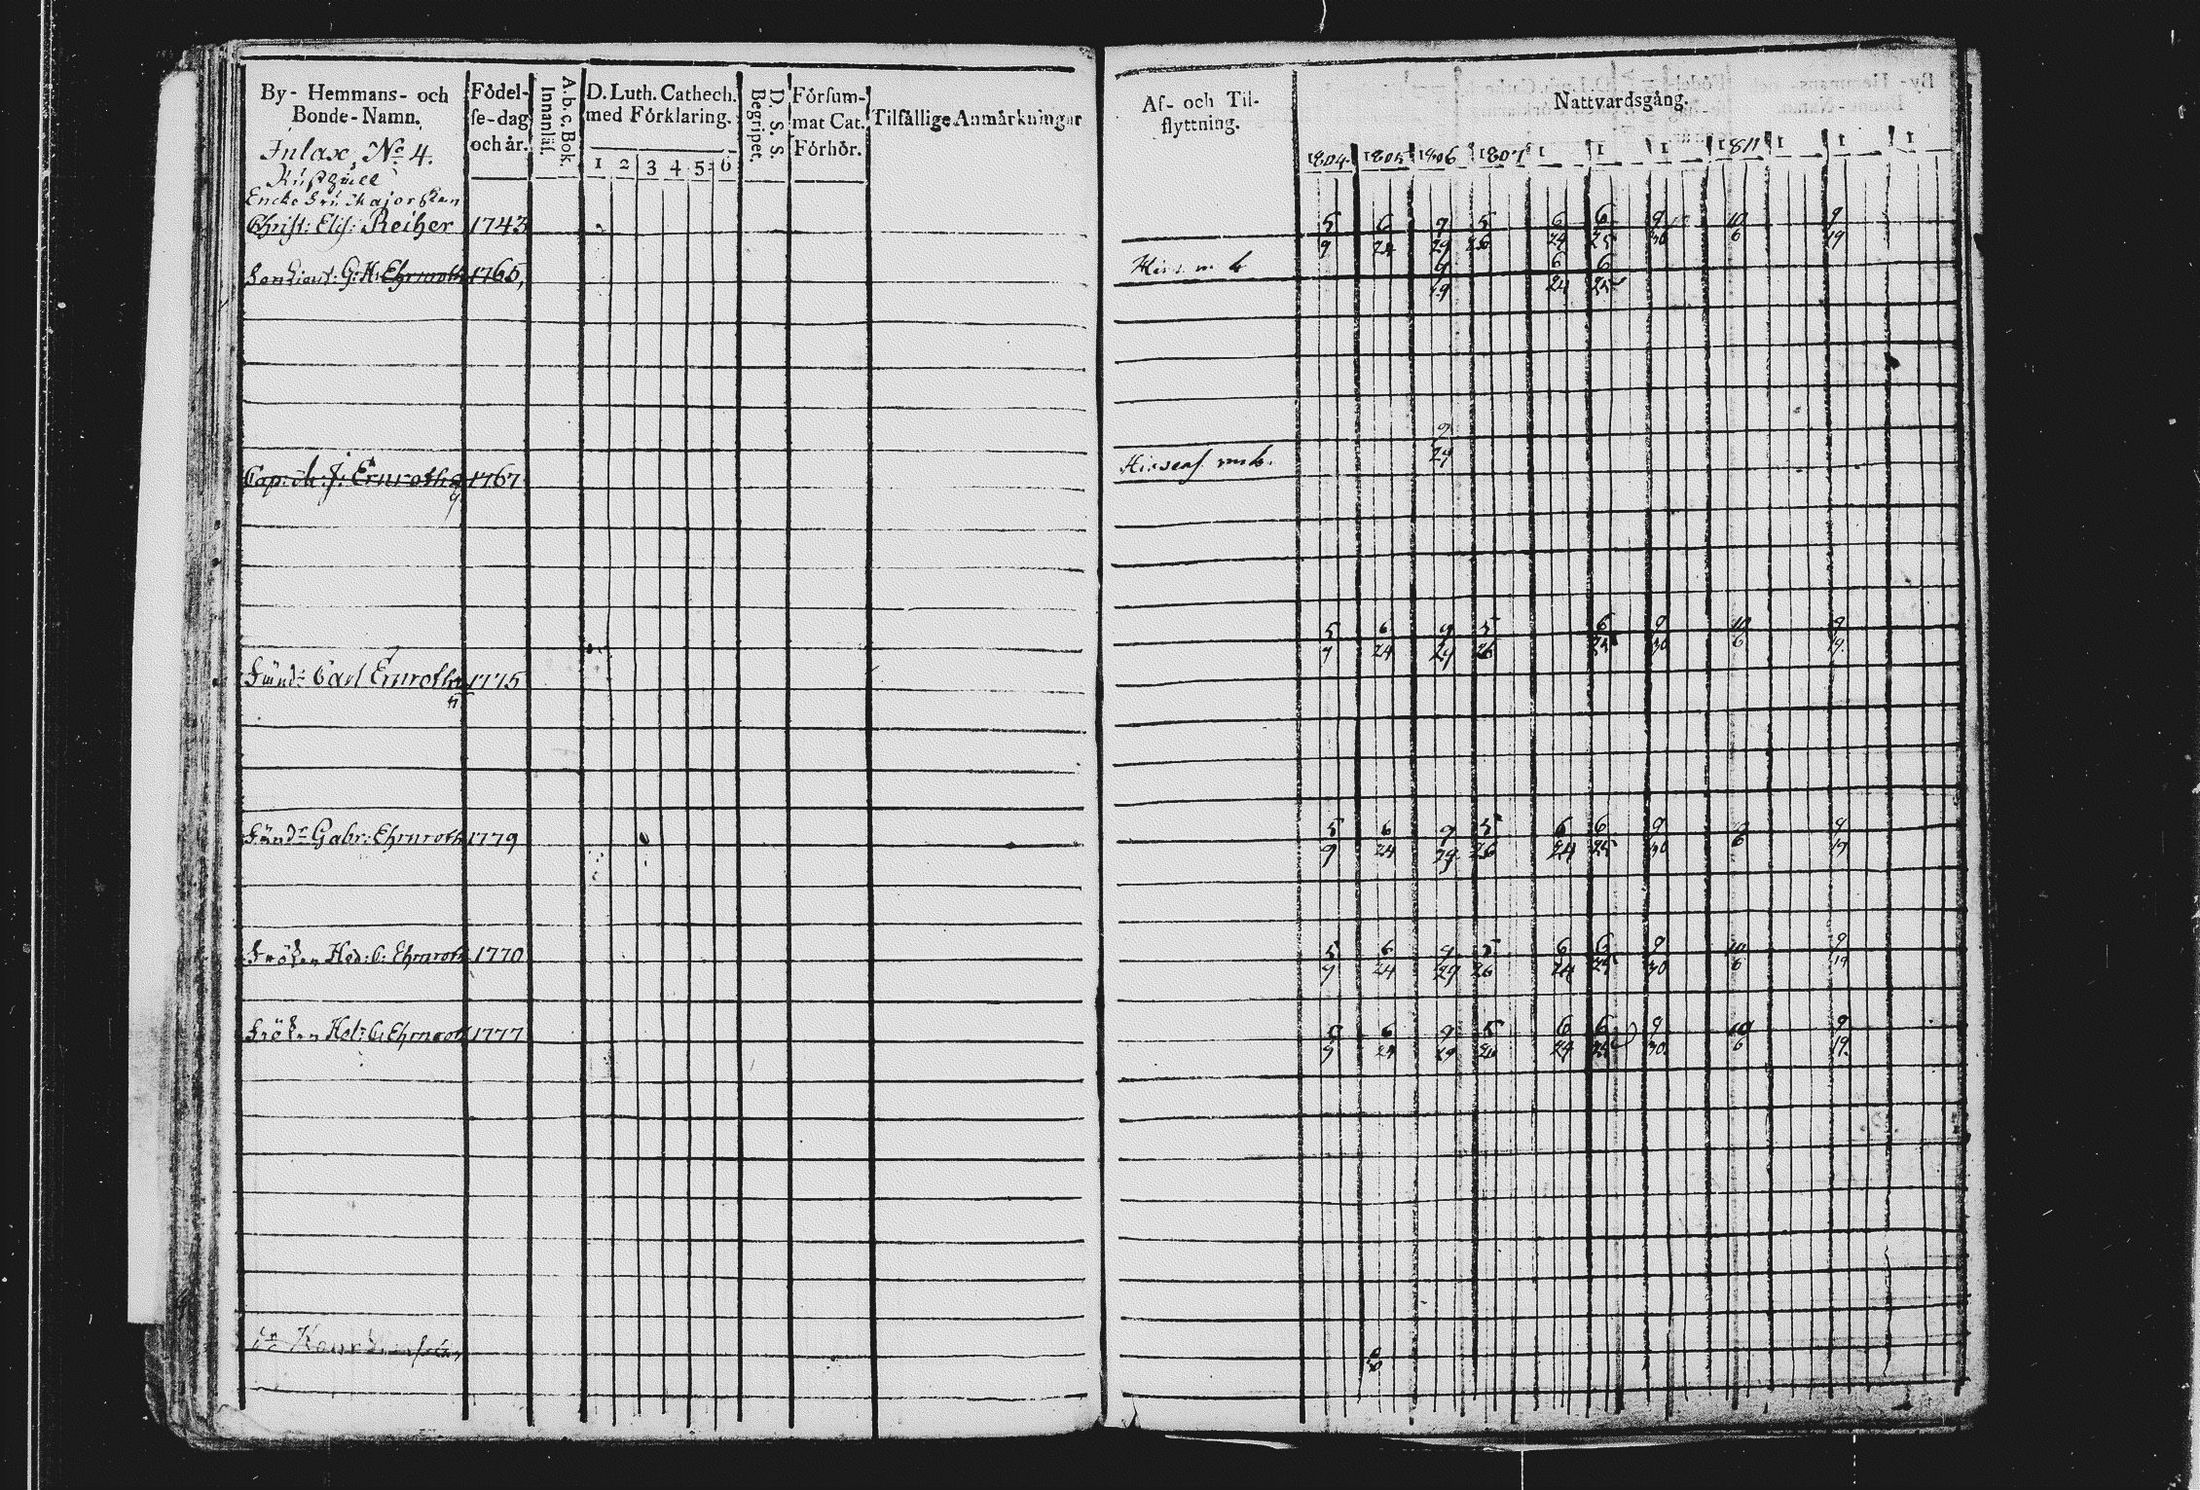 By- Hemmans- och
Bonde-Namn.
Födel-
se-dag
och år.
A.b.c. Bok.
Innanläs.
D. Luth. Cathech.
med Förklaring.
1 2 3 4 5 6
D. S. S.
Begripet.
Försum-
mat Cat.
Förhör.
Tilfällige Anmärkningar
Inlax, No 4.
Rusthåll
Encke Fru Majorskan
Christ: Elis: Reiher 1743
G: H: Ehrnroth 1765,
Cap: J: Ernroth 1767
9
Carl Ernroth 1775
Gabr: Ehrnroth 1779
Fröken Hed: C: Ehrnroth 1770
Fröken Hel: C: Ehrnroth 1777
Af- och Til-
flyttning.
Nattvardsgång.
1804 1805 1806 1807 1 1 1 1811 1 1 1
5 6 9 5 6 6 9 10 9
9 24 29 26 24 25 30 6 19
9 6 6
29 24 25
9
29
5 6 9 5 6 9 10 9
9 24 29 26 25 30 6 19
5 6 9 5 6 6 9 9
9 24 29 26 24 25 30 6 19
5 6 9 5 6 6 9 10 9
9 24 29 26 24 25 30 6 19
5 6 9 5 6 6 9 10 9
9 24 29 26 24 25 30 6 19